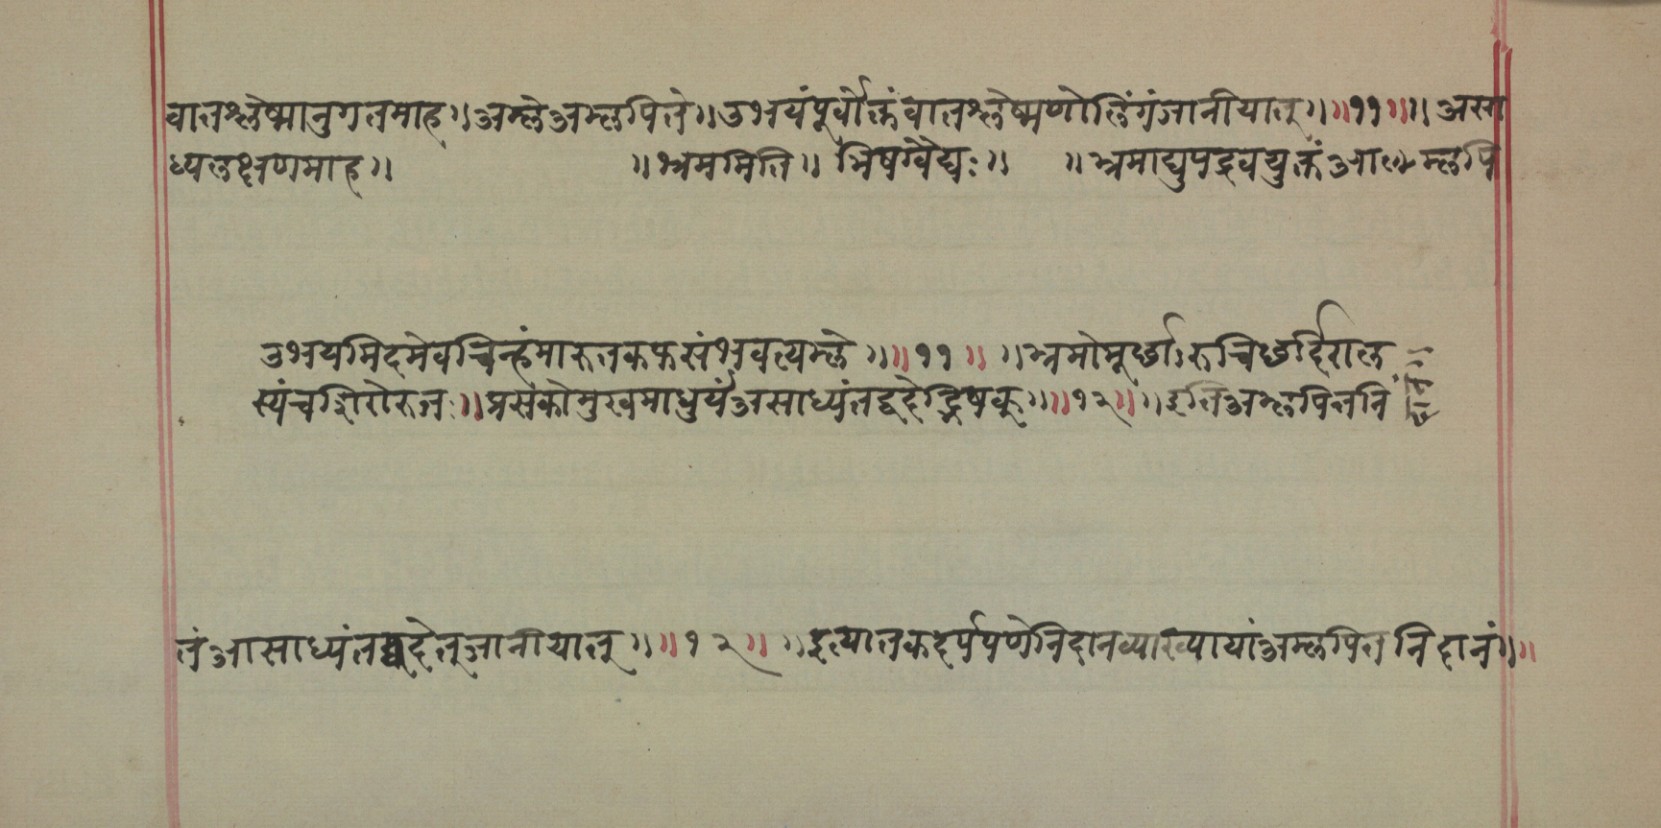 वातश्लेष्मानुगतमाह॥अम्लेअम्लपित्ते॥उभयंपूर्वोक्तंवातश्लेष्मणोर्लिंगंजानीयात्॥॥११॥॥असा
ध्यलक्षणमाह॥ ॥भ्रममिति॥ भिषग्वैद्यः॥ ॥भ्रमाद्युपद्रवयुक्तं
उभयमिदमेवचिन्हंमारुतकफसंभवत्यम्ले॥॥११॥ ॥भ्रमोमूर्छारुचिछर्दिराल
स्यंचशिरोरुजः॥प्रसेकोमुखमाधुर्यंअसाध्यंतद्वदेद्भिषक्॥॥१२॥॥इतिअम्लपित्तनि
तंआसाध्यंतद्वदेत्जानीयात्॥॥१२॥ ॥इत्यातकदर्पपणेनिदानव्याख्यायांअम्लपित्तनिदानं॥॥